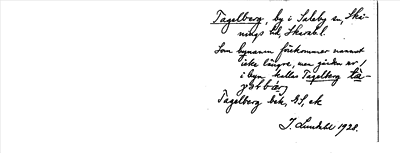 Tagelberg, by i Saleby sn, Skå-
nings hd, Skarabl.
Som bynamn förekommer namnet
icke längre, men gården er /
i byn kallas Tagelberg ta-
Tagelberg bek, GS, ek
J. Lundahl 1928.